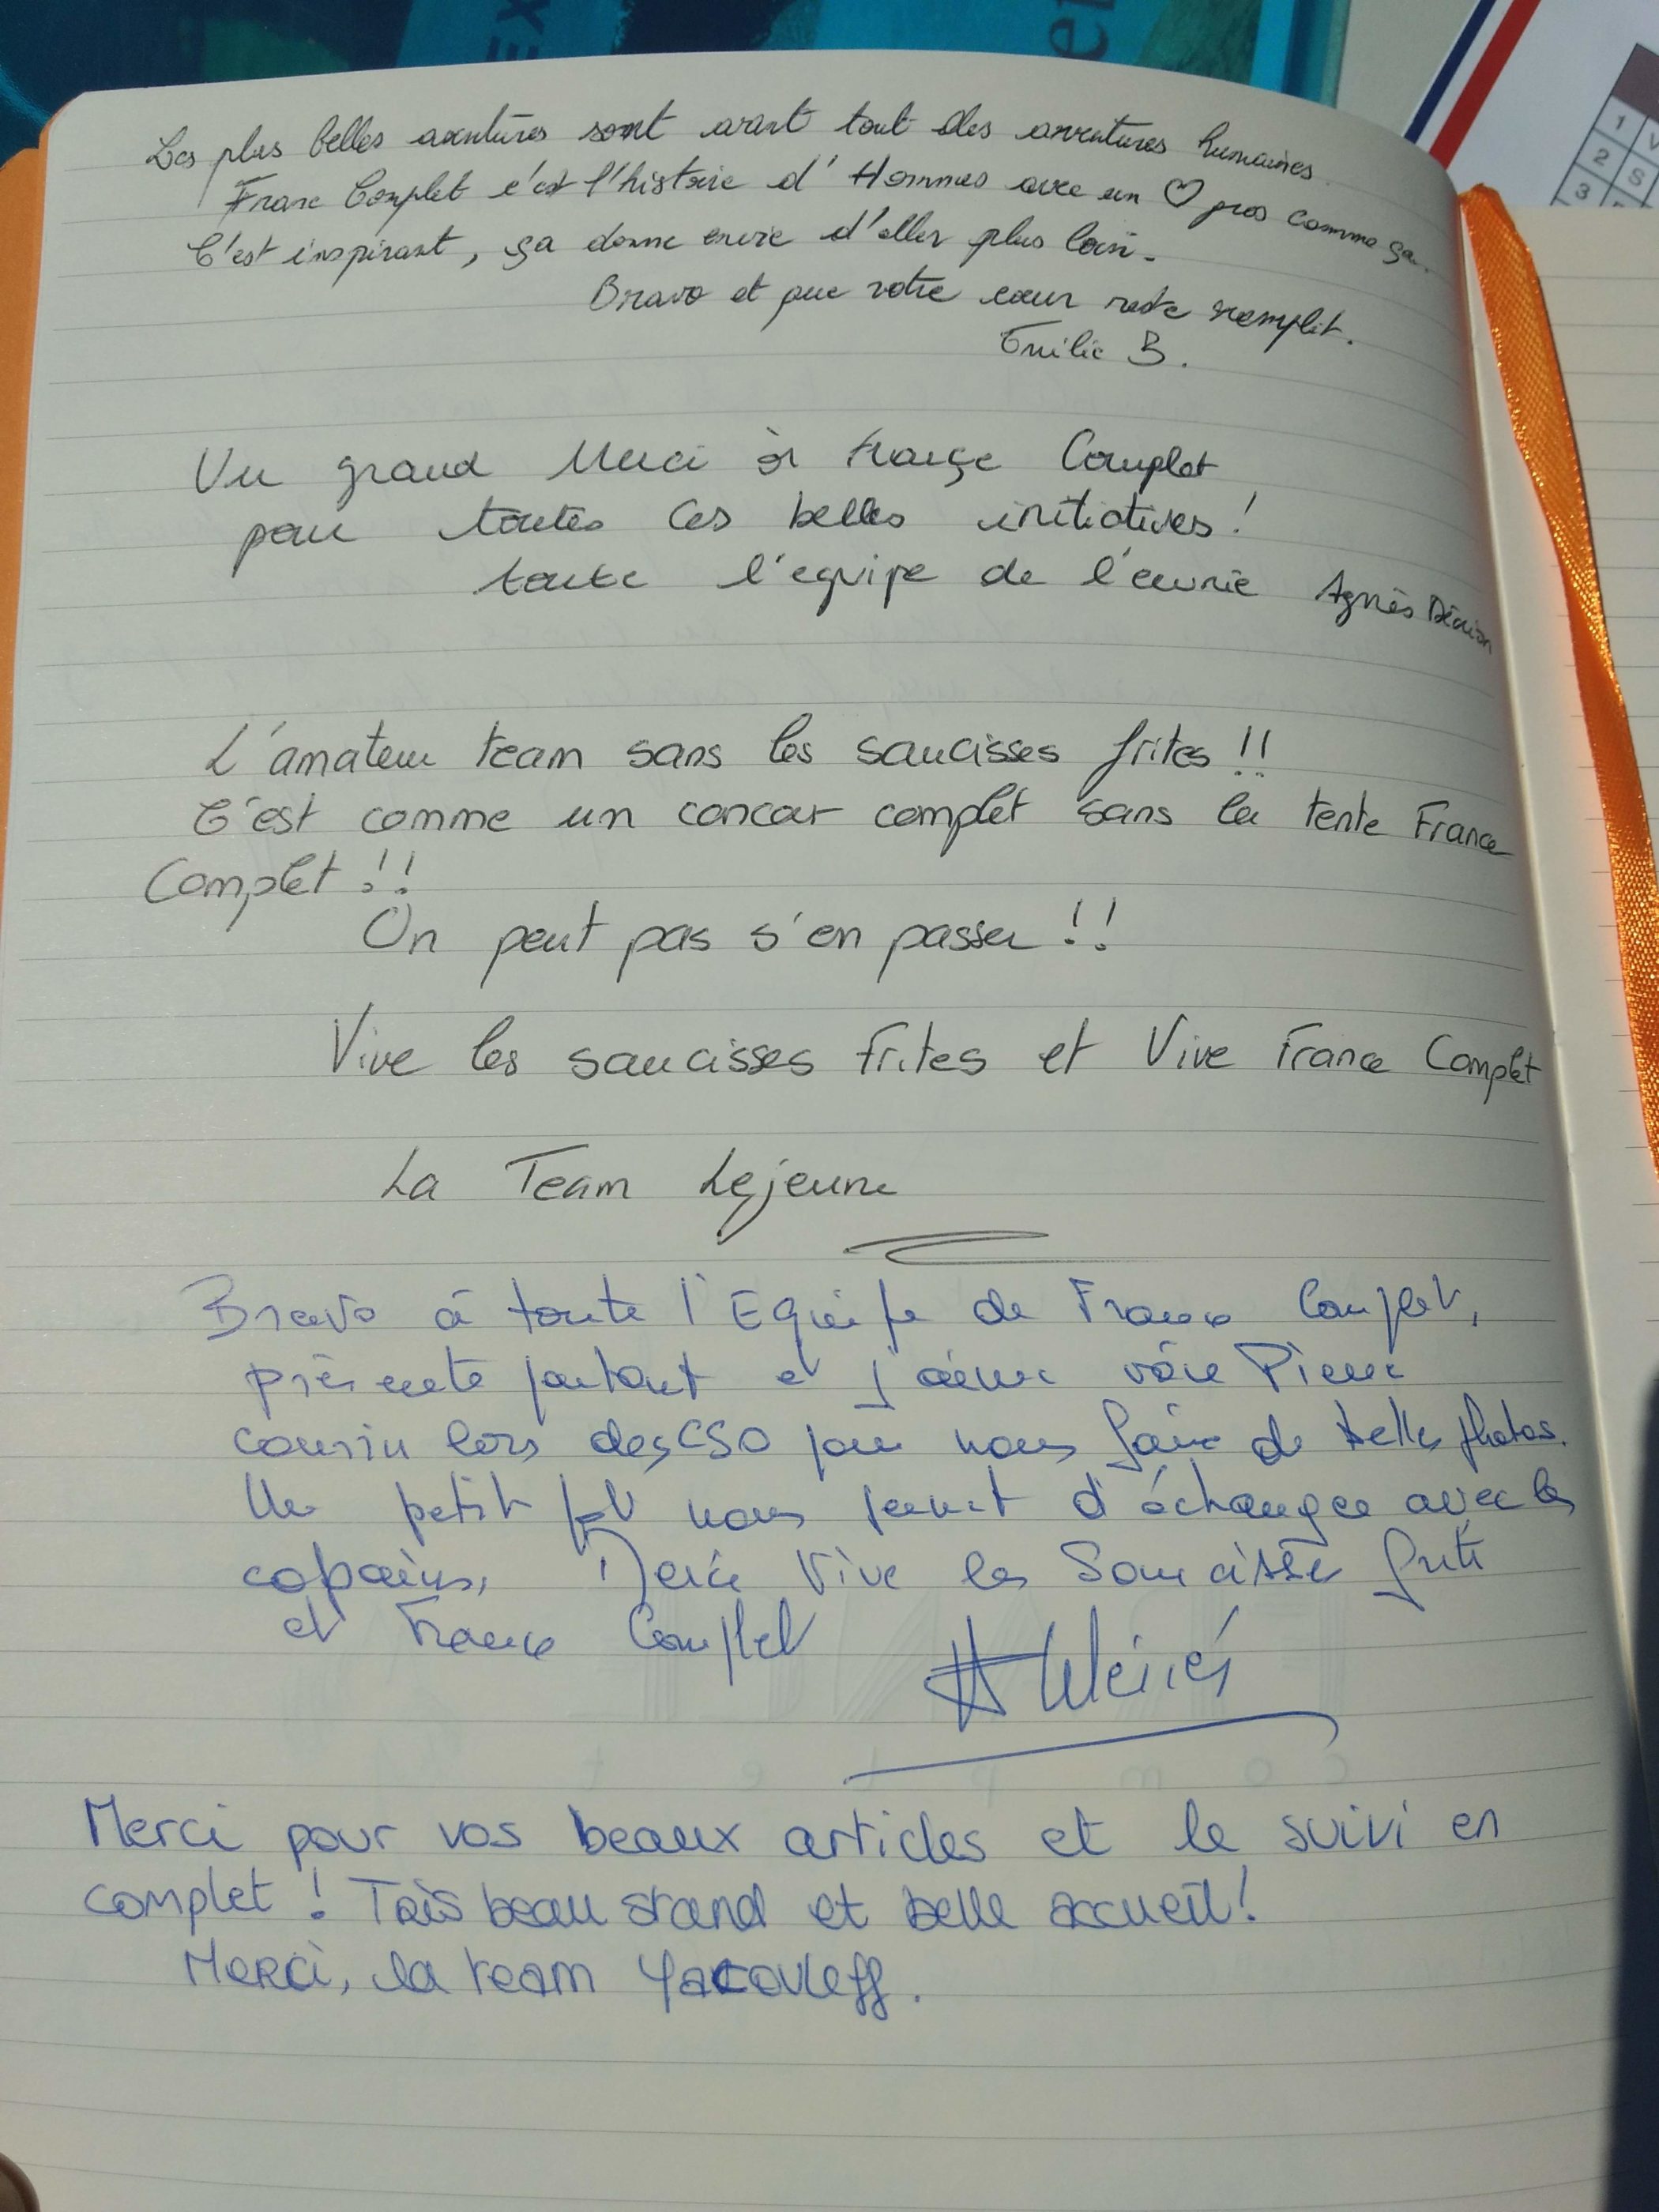 EX
et
1 V
2 S
3
Les plus belles aventures sont avant tout des aventures humaines.
France Complet c'est l'histoire d'Hommes avec un ♡ gros comme ça.
C'est inspirant, ça donne envie d'aller plus loin.
Bravo et que votre cœur reste remplit.
Emilie B.
Un grand Merci à France Complet
pour toutes ces belles initiatives!
toute l'equipe de l'écurie Agnès
L'amateur team sans les saucisses frites!!
C'est comme un concour complet sans la tente France
Complet!!
On peut pas s'en passer!!
Vive les saucisses frites et Vive France Complet
La Team Lejeune
Bravo à toute l'Equipe de France Complet,
présente partout et j'aime voir Pierre
cousin lors des CSO pour nous faire de belles photos.
Un petit pot nous permet d'échanger avec les
copains, Merci Vive les Saucisse frite
et France Complet
Merci pour vos beaux articles et le suivi en
complet! Très beau stand et belle accueil!
Merci, la team Yacovleff.